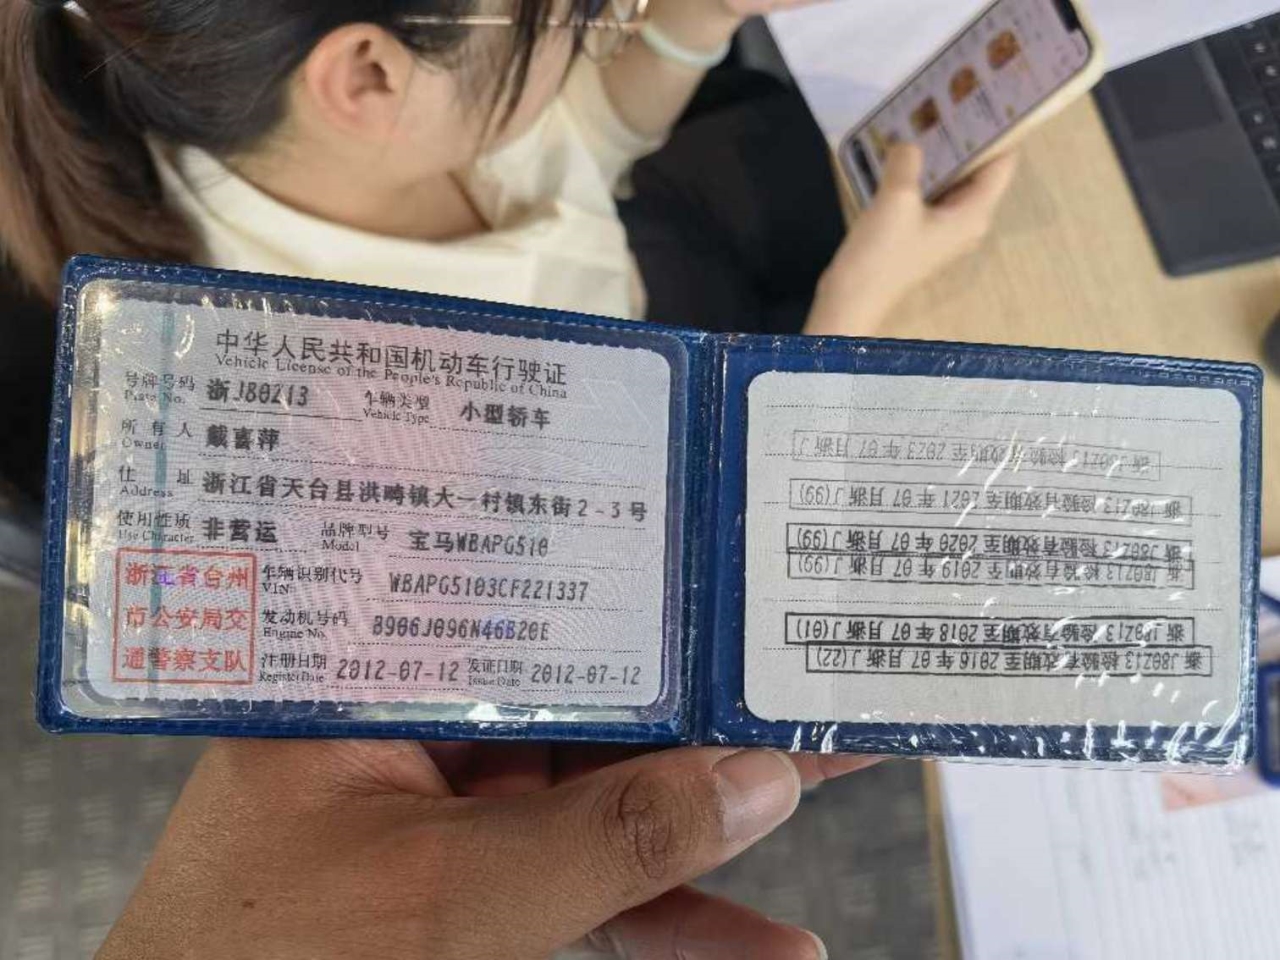 中华人民共和国机动车行驶证
Vehicle License of the People's Republic of China
号牌号码 浙J80213 车辆类型 小型轿车
Plate No. Vehicle Type
所有人 戴喜萍
Owner
住址 浙江省天台县洪畴镇大一村镇东街2-3号
Address
使用性质 非营运 品牌型号 宝马WBAPG510
Use Character Model
车辆识别代号 WBAPG5103CF221337
VIN
发动机号码 B906J096N46B20E
Engine No.
注册日期 2012-07-12 发证日期 2012-07-12
Register Date Issue Date
浙江省台州
市公安局交
通警察支队
浙J80213 检验有效期至 2016 年 07 月浙J(22)
浙J80213 检验有效期至 2018 年 07 月浙J(01)
浙J80213 检验有效期至 2019 年 07 月浙J(99)
浙J80213 检验有效期至 2020 年 07 月浙J(99)
浙J80213 检验有效期至 2021 年 07 月浙J(99)
浙J80213 检验有效期至 2023 年 07 月浙J